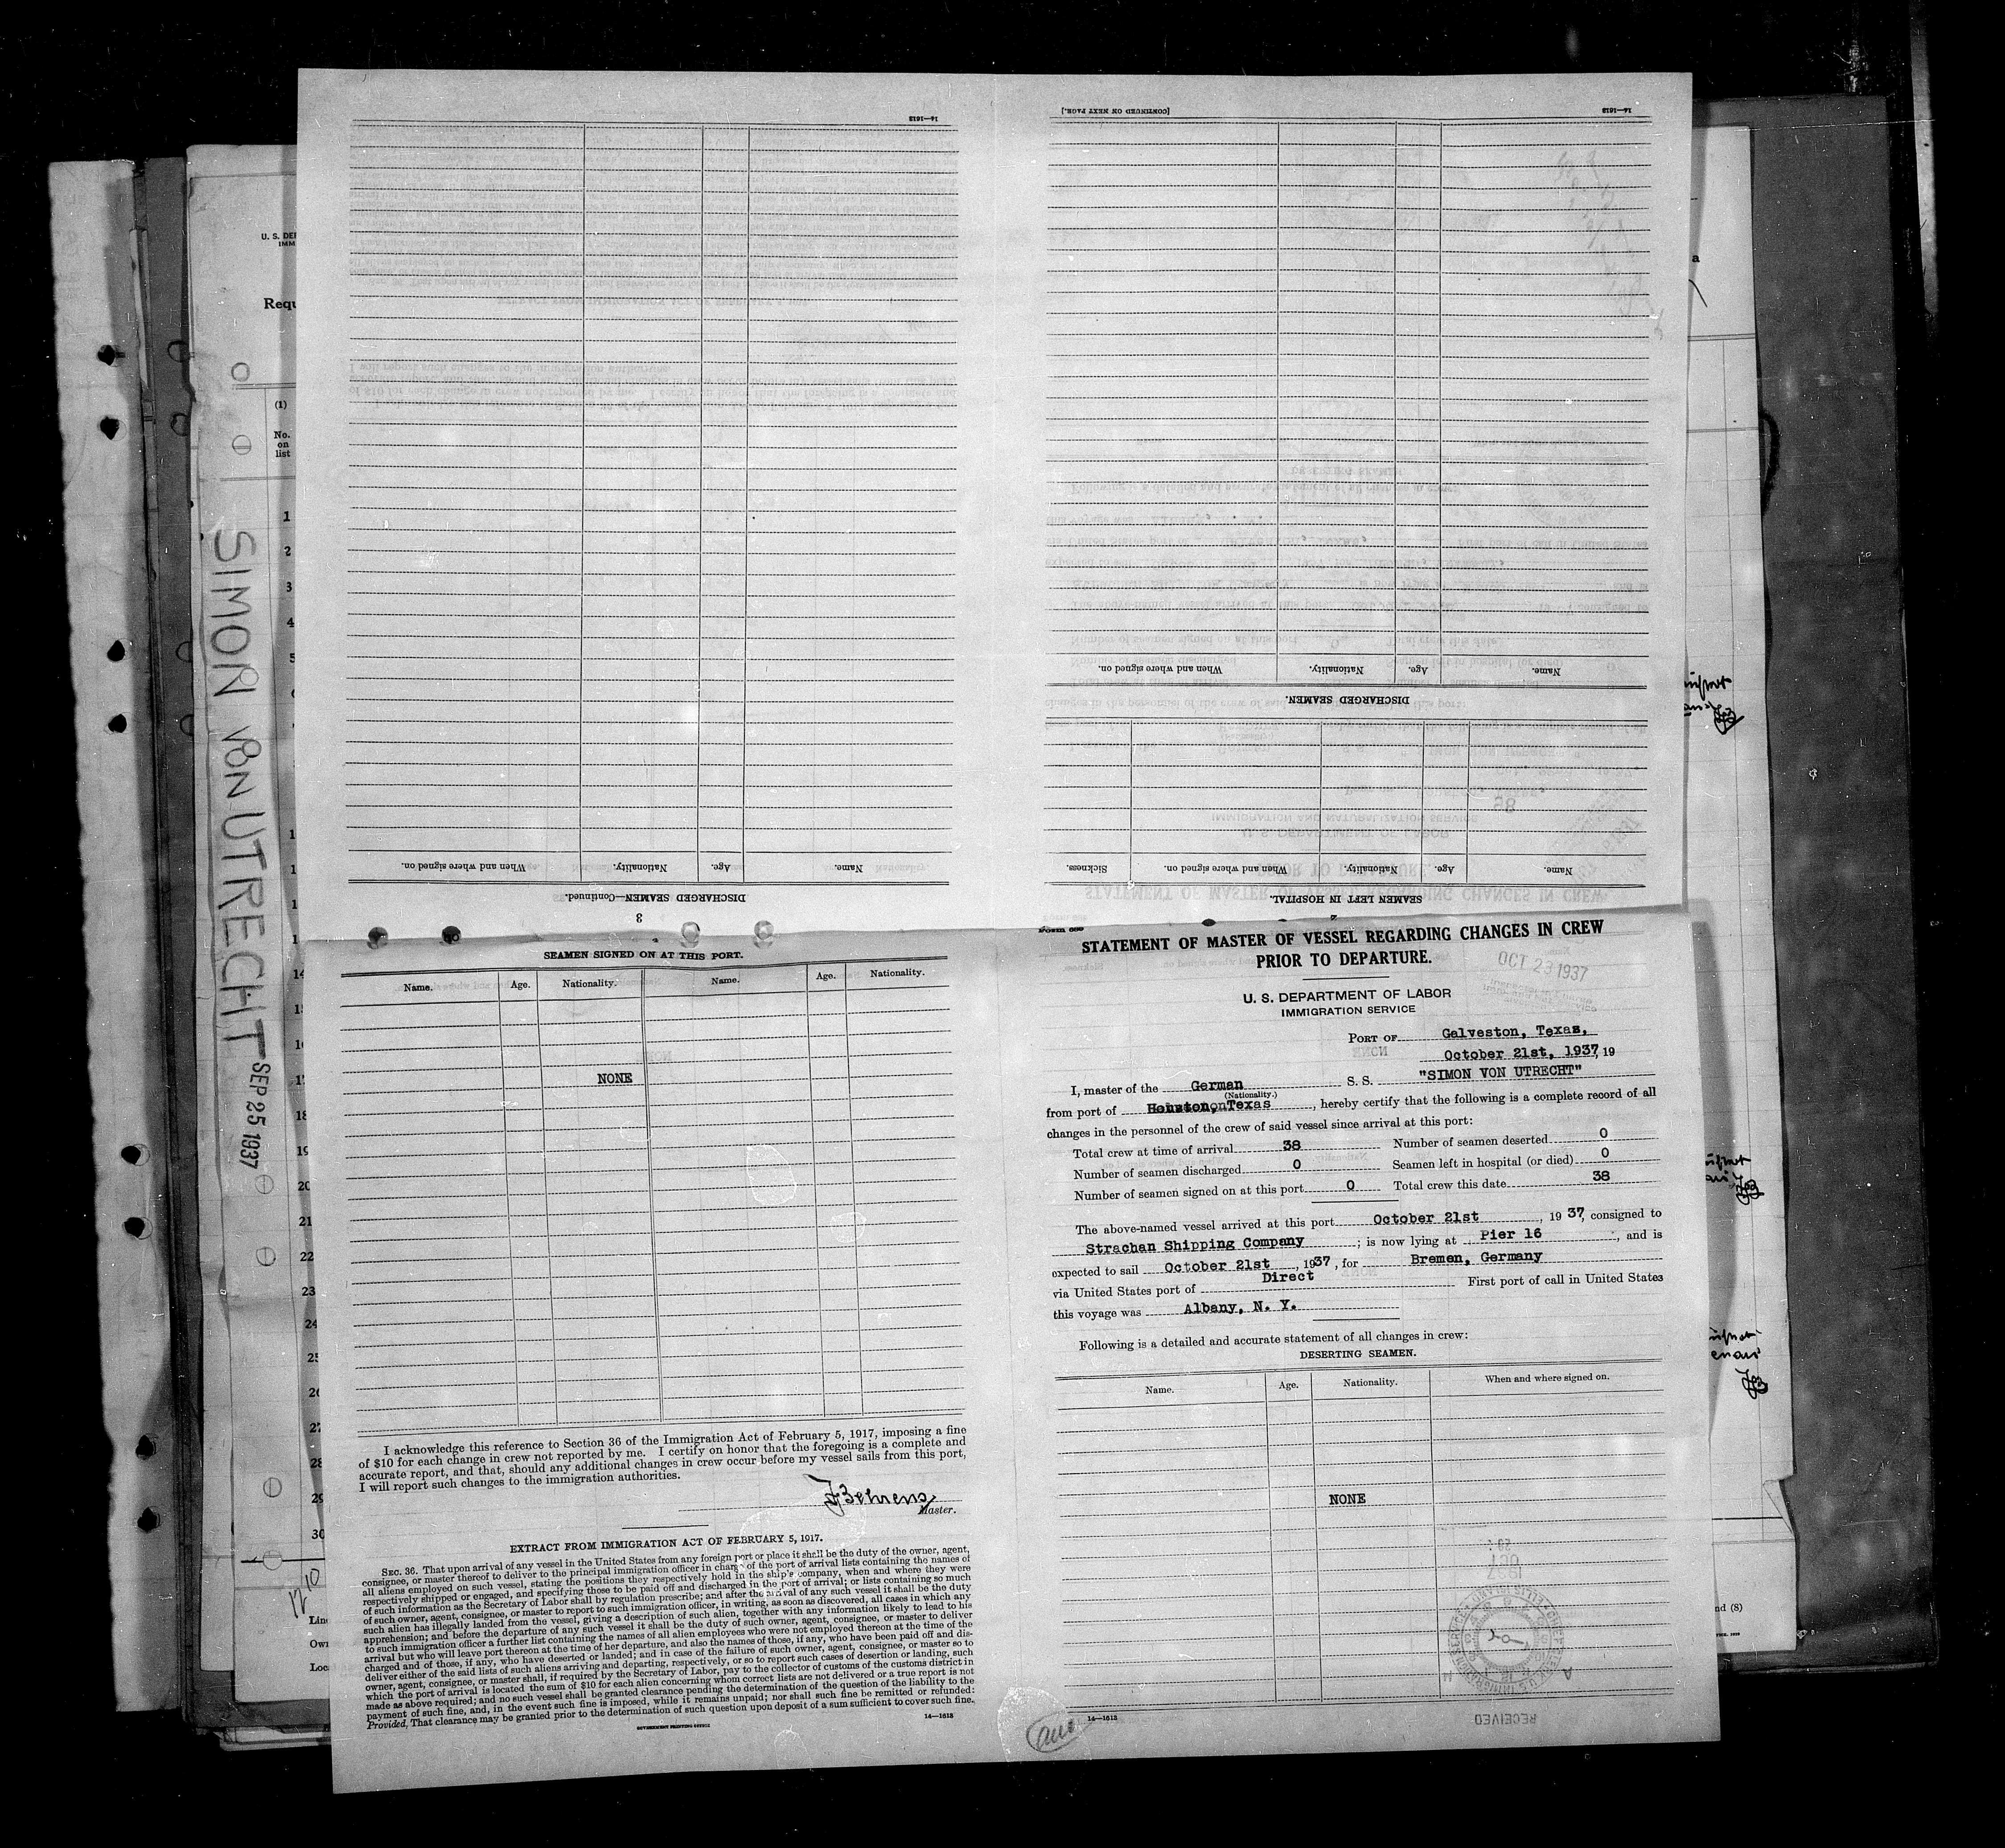 STATEMENT OF MASTER OF VESSEL REGARDING CHANGES IN CREW
PRIOR TO DEPARTURE.
OCT 23 1937
U. S. DEPARTMENT OF LABOR
IMMIGRATION SERVICE
PORT OF Galveston, Texas,
October 21st, 1937, 19
I, master of the German S. S. "SIMON VON UTRECHT"
(Nationality.)
from port of Houston, Texas, hereby certify that the following is a complete record of all
changes in the personnel of the crew of said vessel since arrival at this port:
Total crew at time of arrival 38 Number of seamen deserted 0
Number of seamen discharged 0 Seamen left in hospital (or died) 0
Number of seamen signed on at this port 0 Total crew this date 38
The above-named vessel arrived at this port October 21st, 19 37, consigned to
Strachan Shipping Company; is now lying at Pier 16, and is
expected to sail October 21st, 1937, for Bremen, Germany
via United States port of Direct First port of call in United States
this voyage was Albany, N. Y.
Following is a detailed and accurate statement of all changes in crew:
DESERTING SEAMEN.
Name. Age. Nationality. When and where signed on.
NONE
14—1613
RECEIVED
SEAMEN LEFT IN HOSPITAL.
Name. Age. Nationality. When and where signed on. Sickness.
DISCHARGED SEAMEN.
Name. Age. Nationality. When and where signed on.
14—1613 [CONTINUED ON NEXT PAGE.]
3
DISCHARGED SEAMEN—Continued.
Name. Age. Nationality. When and where signed on.
14—1613
SEAMEN SIGNED ON AT THIS PORT.
Name. Age. Nationality. Name. Age. Nationality.
NONE
I acknowledge this reference to Section 36 of the Immigration Act of February 5, 1917, imposing a fine
of $10 for each change in crew not reported by me. I certify on honor that the foregoing is a complete and
accurate report, and that, should any additional changes in crew occur before my vessel sails from this port,
I will report such changes to the immigration authorities.
J Behrens
Master.
EXTRACT FROM IMMIGRATION ACT OF FEBRUARY 5, 1917.
SEC. 36. That upon arrival of any vessel in the United States from any foreign port or place it shall be the duty of the owner, agent,
consignee, or master thereof to deliver to the principal immigration officer in charge of the port of arrival lists containing the names of
all aliens employed on such vessel, stating the positions they respectively hold in the ship's company, when and where they were
respectively shipped or engaged, and specifying those to be paid off and discharged in the port of arrival; or lists containing so much
of such information as the Secretary of Labor shall by regulation prescribe; and after the arrival of any such vessel it shall be the duty
of such owner, agent, consignee, or master to report to such immigration officer, in writing, as soon as discovered, all cases in which any
such alien has illegally landed from the vessel, giving a description of such alien, together with any information likely to lead to his
apprehension; and before the departure of any such vessel it shall be the duty of such owner, agent, consignee, or master to deliver
to such immigration officer a further list containing the names of all alien employees who were not employed thereon at the time of the
arrival but who will leave port thereon at the time of her departure, and also the names of those, if any, who have been paid off and dis-
charged and of those, if any, who have deserted or landed; and in case of the failure of such owner, agent, consignee, or master so to
deliver either of the said lists of such aliens arriving and departing, respectively, or so to report such cases of desertion or landing, such
owner, agent, consignee, or master shall, if required by the Secretary of Labor, pay to the collector of customs of the customs district in
which the port of arrival is located the sum of $10 for each alien concerning whom correct lists are not delivered or a true report is not
made as above required; and no such vessel shall be granted clearance pending the determination of the question of the liability to the
payment of such fine, and, in the event such fine is imposed, while it remains unpaid; nor shall such fine be remitted or refunded:
Provided, That clearance may be granted prior to the determination of such question upon deposit of a sum sufficient to cover such fine.
GOVERNMENT PRINTING OFFICE 14—1613
SIMON VON UTRECHT SEP 25 1937
(1)
No.
on
list
1
2
3
4
5
14
18
19
20
21
22
23
24
28
29
30